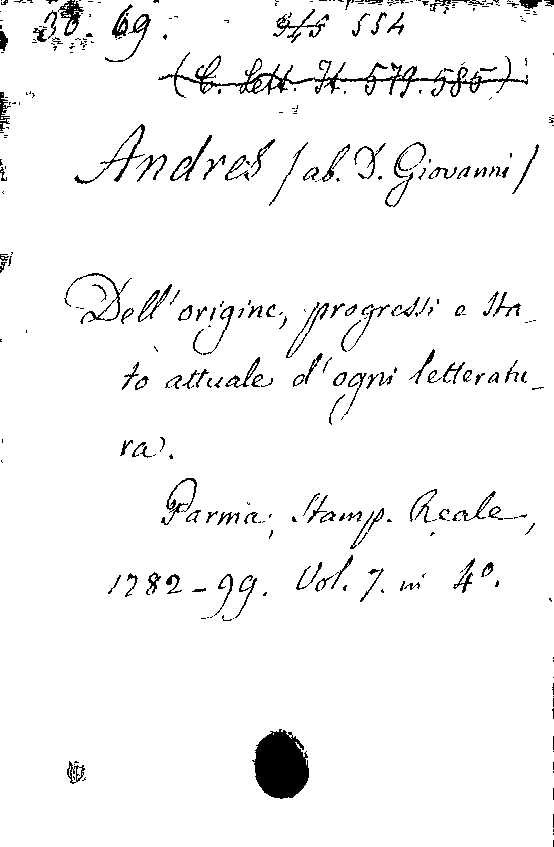 30. 69. 545 554
(C. Lett. It. 579. 585)
Andres / ab. D. Giovanni /
Dell' origine, progressi e sta-
to attuale d' ogni letteratu-
ra.
Parma, Stamp. Reale,
1782-99. Vol. 7. in 4º.